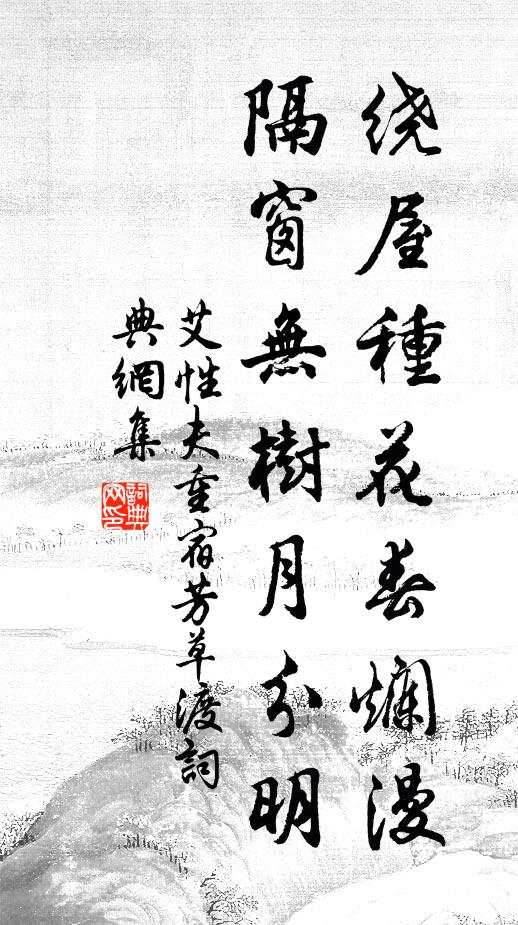 绕屋種花春爛漫
隔窗無樹月分明
艾性夫重宿芳草渡詞
典網集
詞典
网印